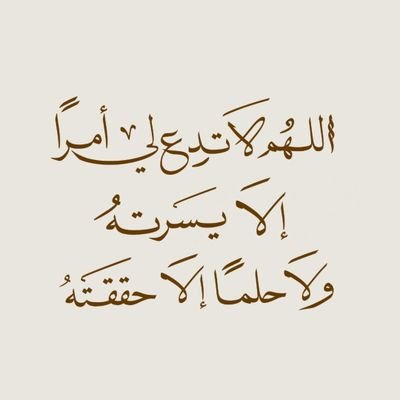 اللهُم لَا تدِع لي أمراً
إلَا يسَرتهُ
ولَا حلمًا إلَا حققَتهُ